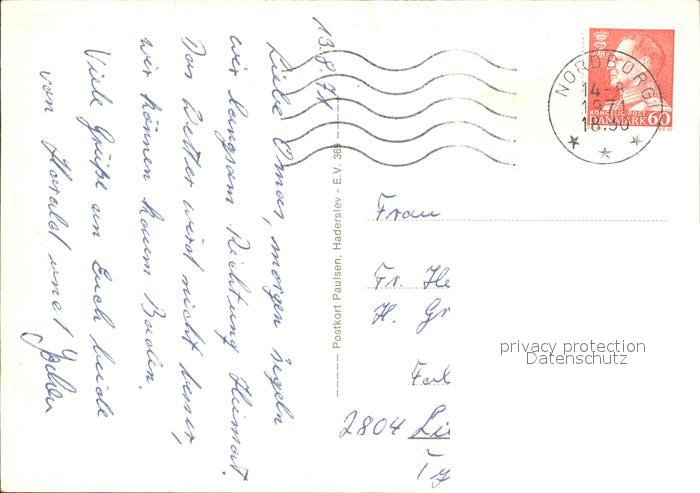 13.8.71
Liebe Omas, morgen segeln
wir langsam Richtung Heimat.
Das Wetter wird nicht besser,
wir können kaum Baden.
Viele Grüße an Euch beide
von Harald und
Postkort Paulsen, Haderslev - E.V. 369
NORDBORG
14-8
1971
18.30
KONGELIG POST
DANMARK 60
Frau
Fr. He
H. Gr
2804 Li
privacy protection
Datenschutz